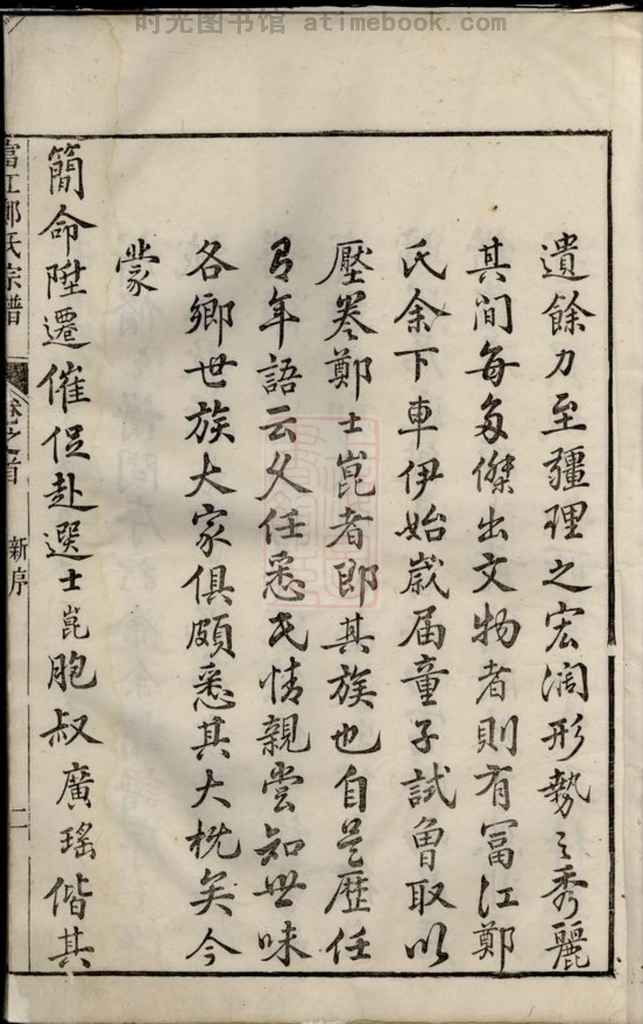 时光图书馆 - atimebook.com
遺餘力至疆理之宏濶形勢之秀麗
其间每多傑出文物者則有冨江鄭
氏余下車伊始歲届童子試曾取以
壓卷鄭士崑者即其族也自是歴任
有年語云久任悉民情親嘗知世味
各鄉世族大家俱頗悉其大槪矣今
蒙
簡命陞遷催促赴選士崑胞叔廣瑤偕其
富江鄭氏宗譜
卷之首
新序
二